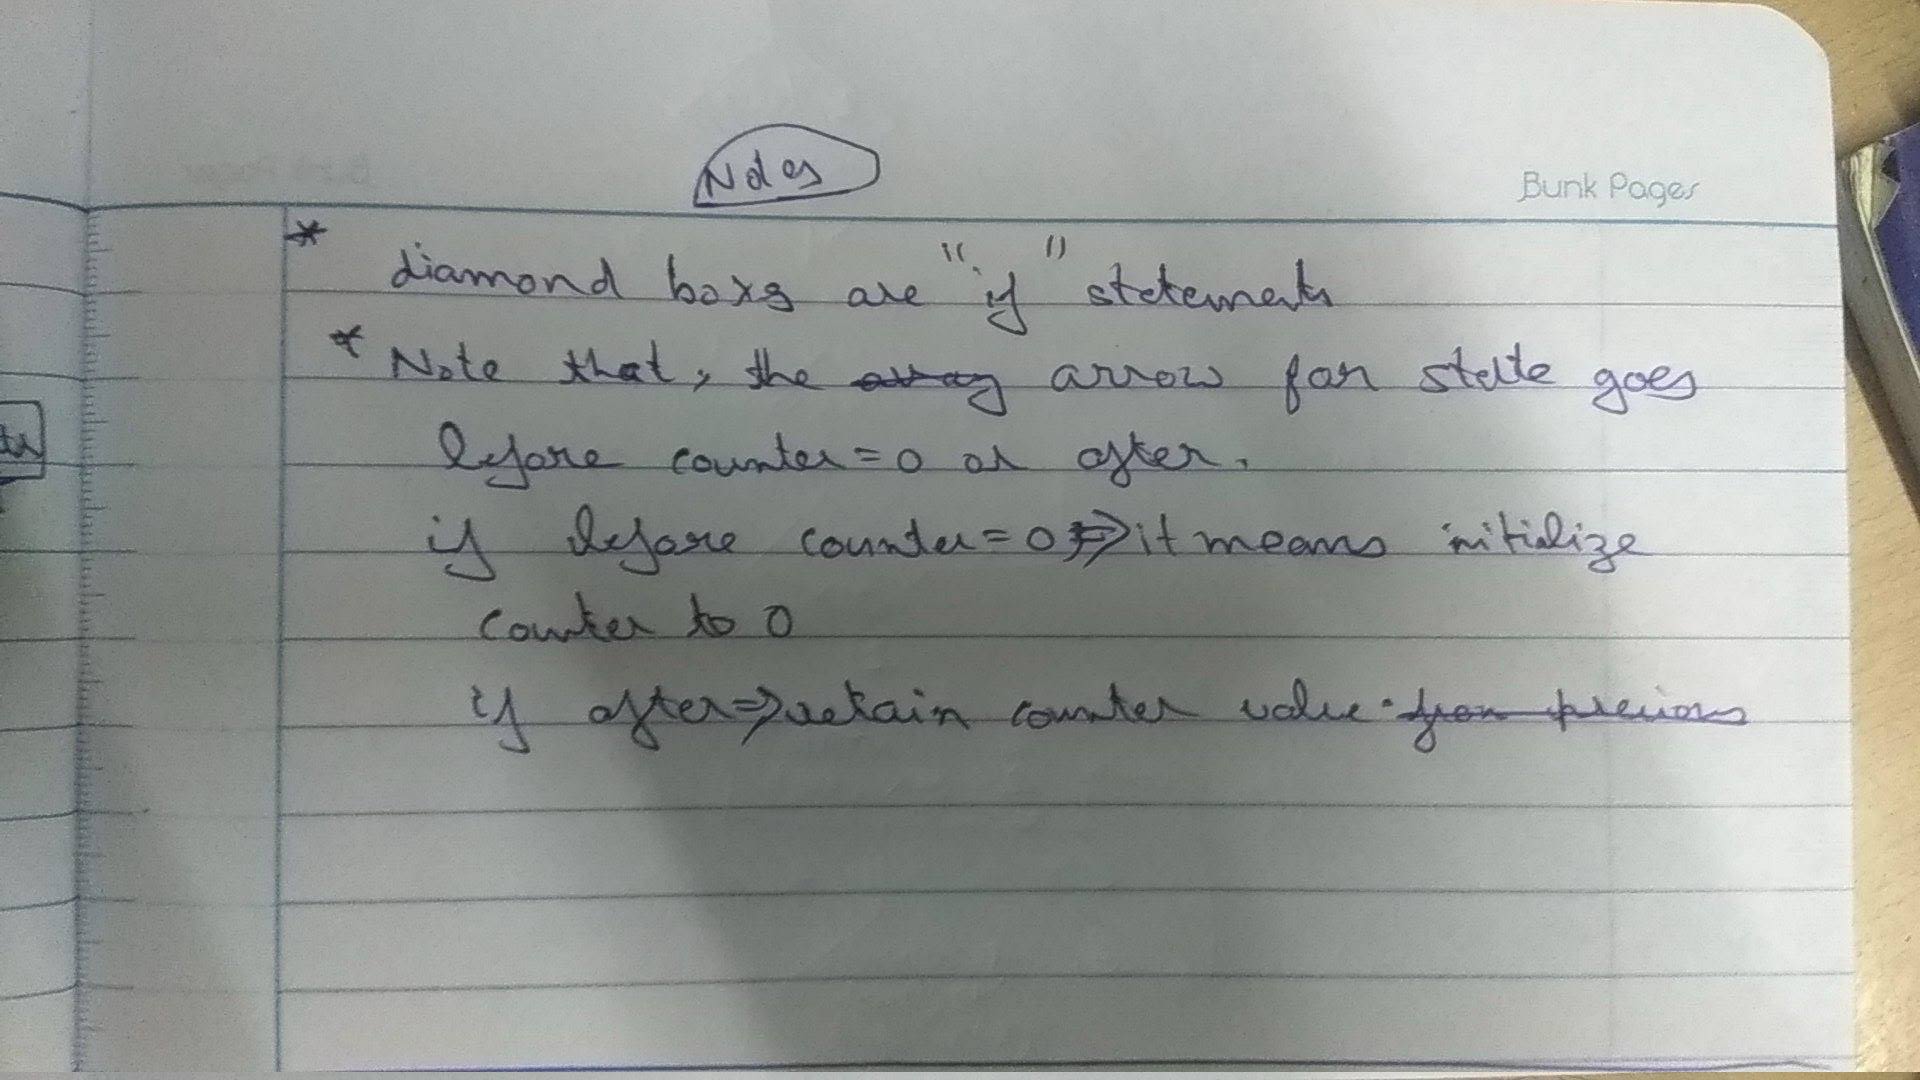 Notes
Bunk Pages
* diamond boxs are "if" statements
* Note that, the arrow for state goes
before counter = 0 or after.
if before counter = 0 ⇒ it means initialize
counter to 0
if after ⇒ retain counter value. from previous